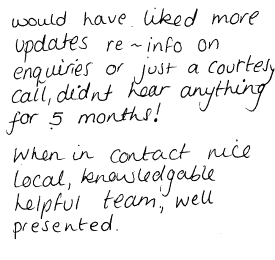 would have liked more
updates re ~ info on
enquiries or just a courtesy
call, didnt hear anything
for 5 months!
When in contact nice
local, knowledgable
helpful team, well
presented.